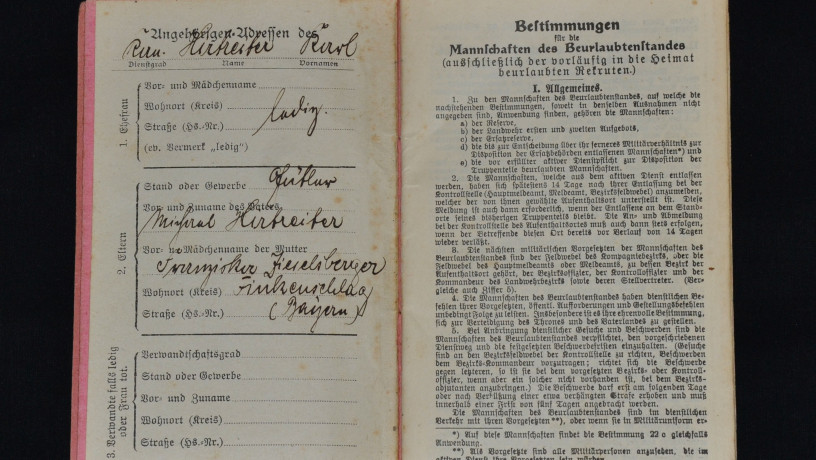 Angehörigen-Adressen des
Kan. Hirtreiter Karl
Dienstgrad Name Vornamen
1. Ehefrau
Vor- und Mädchenname
Wohnort (Kreis) ledig.
Straße (Hs.-Nr.)
(ev. Vermerk „ledig“)
2. Eltern
Stand oder Gewerbe
Vor- und Zuname des Vaters
Michael Hirtreiter
Vor- u. Mädchenname der Mutter
Franziska Zieselsberger
Wohnort (Kreis) Finkenschlag
Straße (Hs.-Nr.) (Bayern)
3. Verwandte falls ledig
oder Frau tot.
Verwandtschaftsgrad
Stand oder Gewerbe
Vor- und Zuname
Wohnort (Kreis)
Straße (Hs.-Nr.)
Bestimmungen
für die
Mannschaften des Beurlaubtenstandes
(ausschließlich der vorläufig in die Heimat
beurlaubten Rekruten.)
I. Allgemeines.
1. Zu den Mannschaften des Beurlaubtenstandes, auf welche die
nachstehenden Bestimmungen, soweit in denselben Ausnahmen nicht
angegeben sind, Anwendung finden, gehören die Mannschaften:
a) der Reserve,
b) der Landwehr ersten und zweiten Aufgebots,
c) der Ersatzreserve,
d) die bis zur Entscheidung über ihr ferneres Militärverhältnis zur
Disposition der Ersatzbehörden entlassenen Mannschaften*) und
e) die vor erfüllter aktiver Dienstpflicht zur Disposition der
Truppenteile beurlaubten Mannschaften.
2. Die Mannschaften, welche aus dem aktiven Dienst entlassen
werden, haben sich spätestens 14 Tage nach ihrer Entlassung bei der
Kontrollstelle (Hauptmeldeamt, Meldeamt, Bezirksfeldwebel) anzumelden,
welcher der von ihnen gewählte Aufenthaltsort unterstellt ist. Diese
Meldung ist auch dann erforderlich, wenn der Entlassene an dem Stand-
orte seines bisherigen Truppenteils bleibt. Die An- und Abmeldung
bei der Kontrollstelle des Aufenthaltsortes muß auch dann stets erfolgen,
wenn der Betreffende diesen Ort bereits vor Verlauf von 14 Tagen
wieder verläßt.
3. Die nächsten militärischen Vorgesetzten der Mannschaften des
Beurlaubtenstandes sind der Feldwebel des Kompagniebezirks, oder die
Feldwebel des Hauptmeldeamts oder Meldeamts, zu dessen Bezirk der
Aufenthaltsort gehört, der Bezirksoffizier, der Kontrolloffizier und der
Kommandeur des Landwehrbezirks sowie deren Stellvertreter. (Ver-
gleiche auch Ziffer 5).
4. Die Mannschaften des Beurlaubtenstandes haben dienstlichen Be-
fehlen ihrer Vorgesetzten, öffentl. Aufforderungen und Gestellungsbefehlen
unbedingt Folge zu leisten. Insbesondere ist es ihre ehrenvolle Bestimmung,
sich zur Verteidigung des Thrones und des Vaterlandes zu gestellen.
5. Bei Anbringung dienstlicher Gesuche und Beschwerden sind die
Mannschaften des Beurlaubtenstandes verpflichtet, den vorgeschriebenen
Dienstweg und die festgesetzten Beschwerdefristen einzuhalten. (Gesuche
sind an den Bezirksfeldwebel der Kontrollstelle zu richten, Beschwerden
dem Bezirks-Kommandeur vorzutragen; richtet sich die Beschwerde
gegen letzteren, so ist sie bei dem vorgesetzten Bezirks- oder Kontroll-
offizier, wenn aber ein solcher nicht vorhanden ist, bei dem Bezirks-
adjutanten anzubringen.) Die Beschwerde darf erst am folgenden Tage
oder nach Verbüßung einer etwa verhängten Strafe erhoben und muß
innerhalb einer Frist von fünf Tagen angebracht werden.
Die Mannschaften des Beurlaubtenstandes sind im dienstlichen
Verkehr mit ihren Vorgesetzten**), oder wenn sie in Militäruniform er-
*) Auf diese Mannschaften findet die Bestimmung 22 c gleichfalls
Anwendung.
**) Als Vorgesetzte sind alle Militärpersonen anzusehen, die im